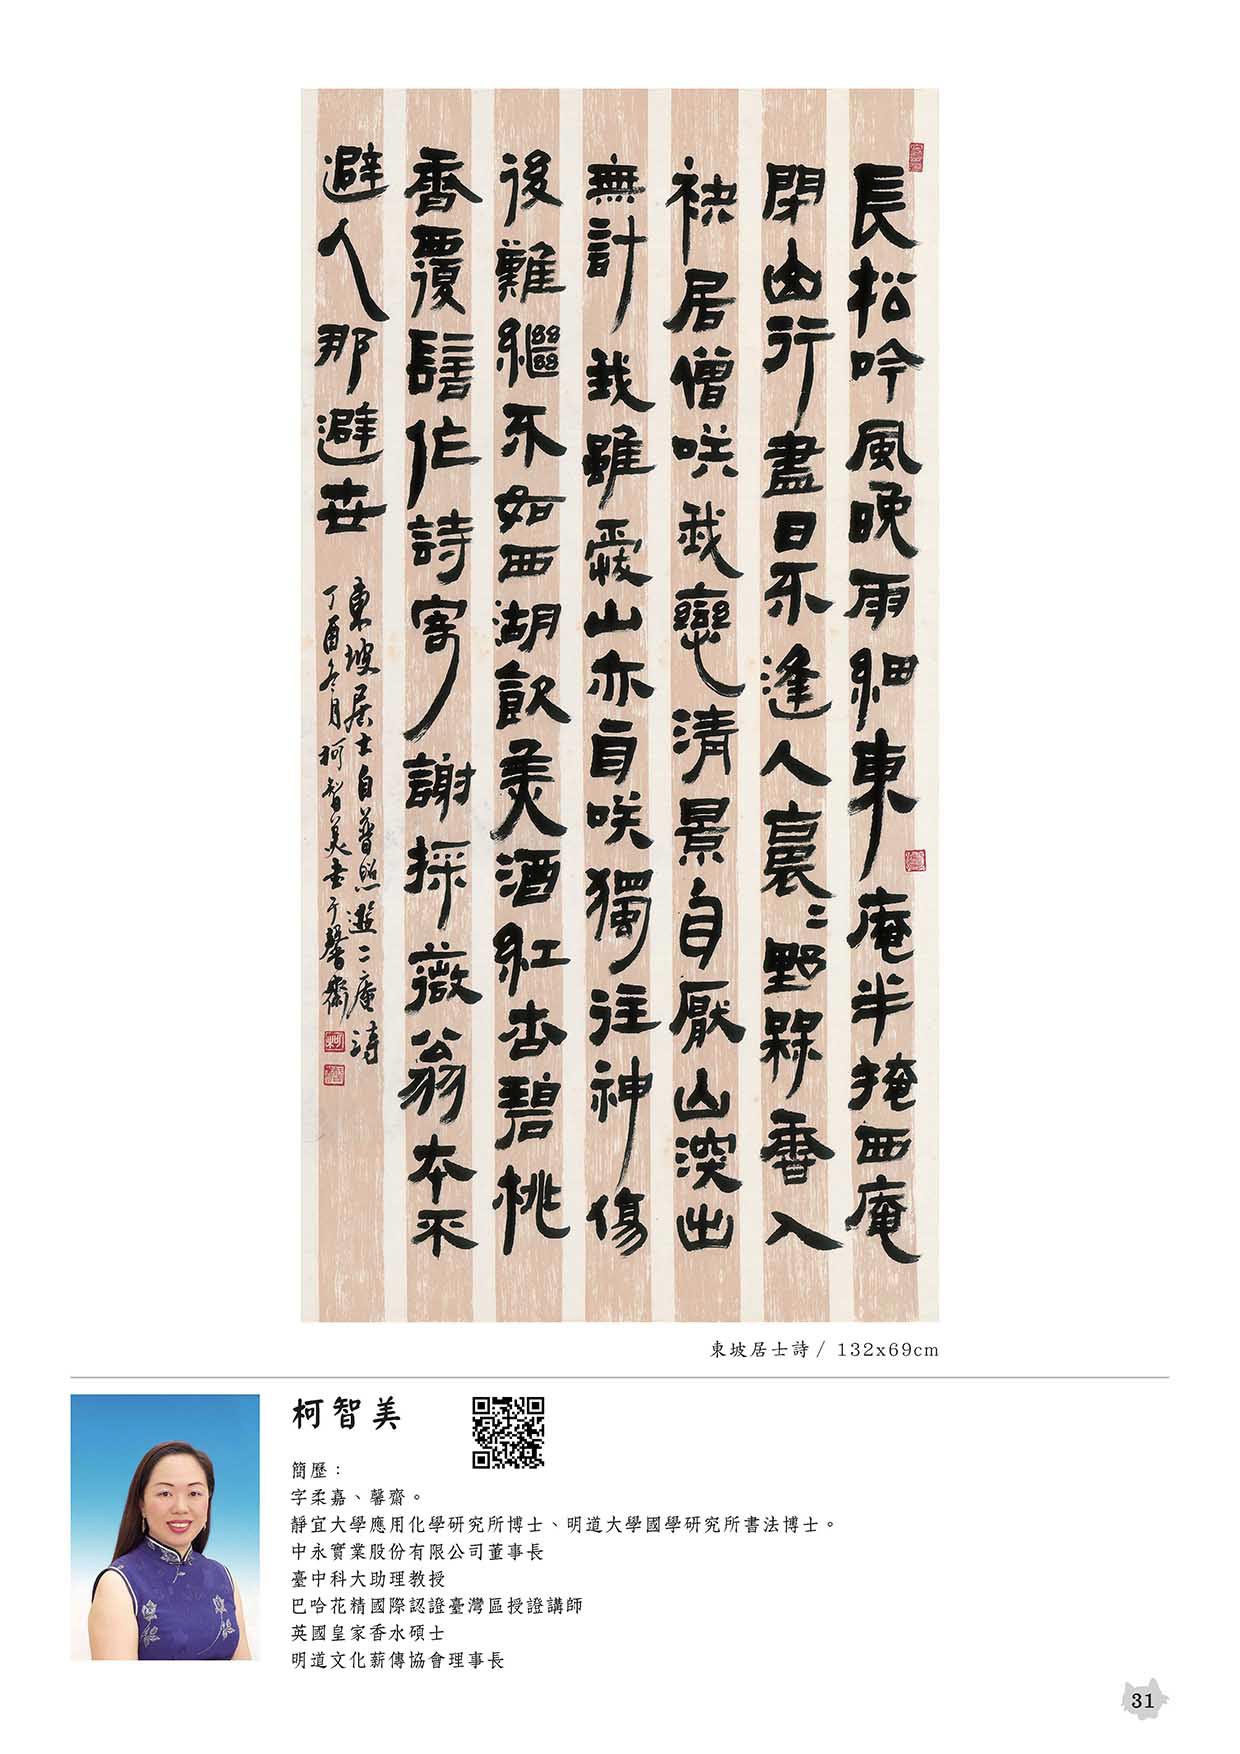 長松吟風晚雨細東庵半掩西庵
閉山行盡日不逢人裛裛野梅香入
袂居僧笑我戀清景自厭山深出
無計我雖愛山亦自笑獨往神傷
後難繼不如西湖飲美酒紅杏碧桃
香覆髻作詩寄謝採薇翁本不
避人那避世
東坡居士自普照遊二庵詩
丁酉冬月柯智美書于馨齋
東坡居士詩 / 132x69cm
柯智美
簡歷：
字柔嘉、馨齋。
靜宜大學應用化學研究所博士、明道大學國學研究所書法博士。
中永實業股份有限公司董事長
臺中科大助理教授
巴哈花精國際認證臺灣區授證講師
英國皇家香水碩士
明道文化薪傳協會理事長
31